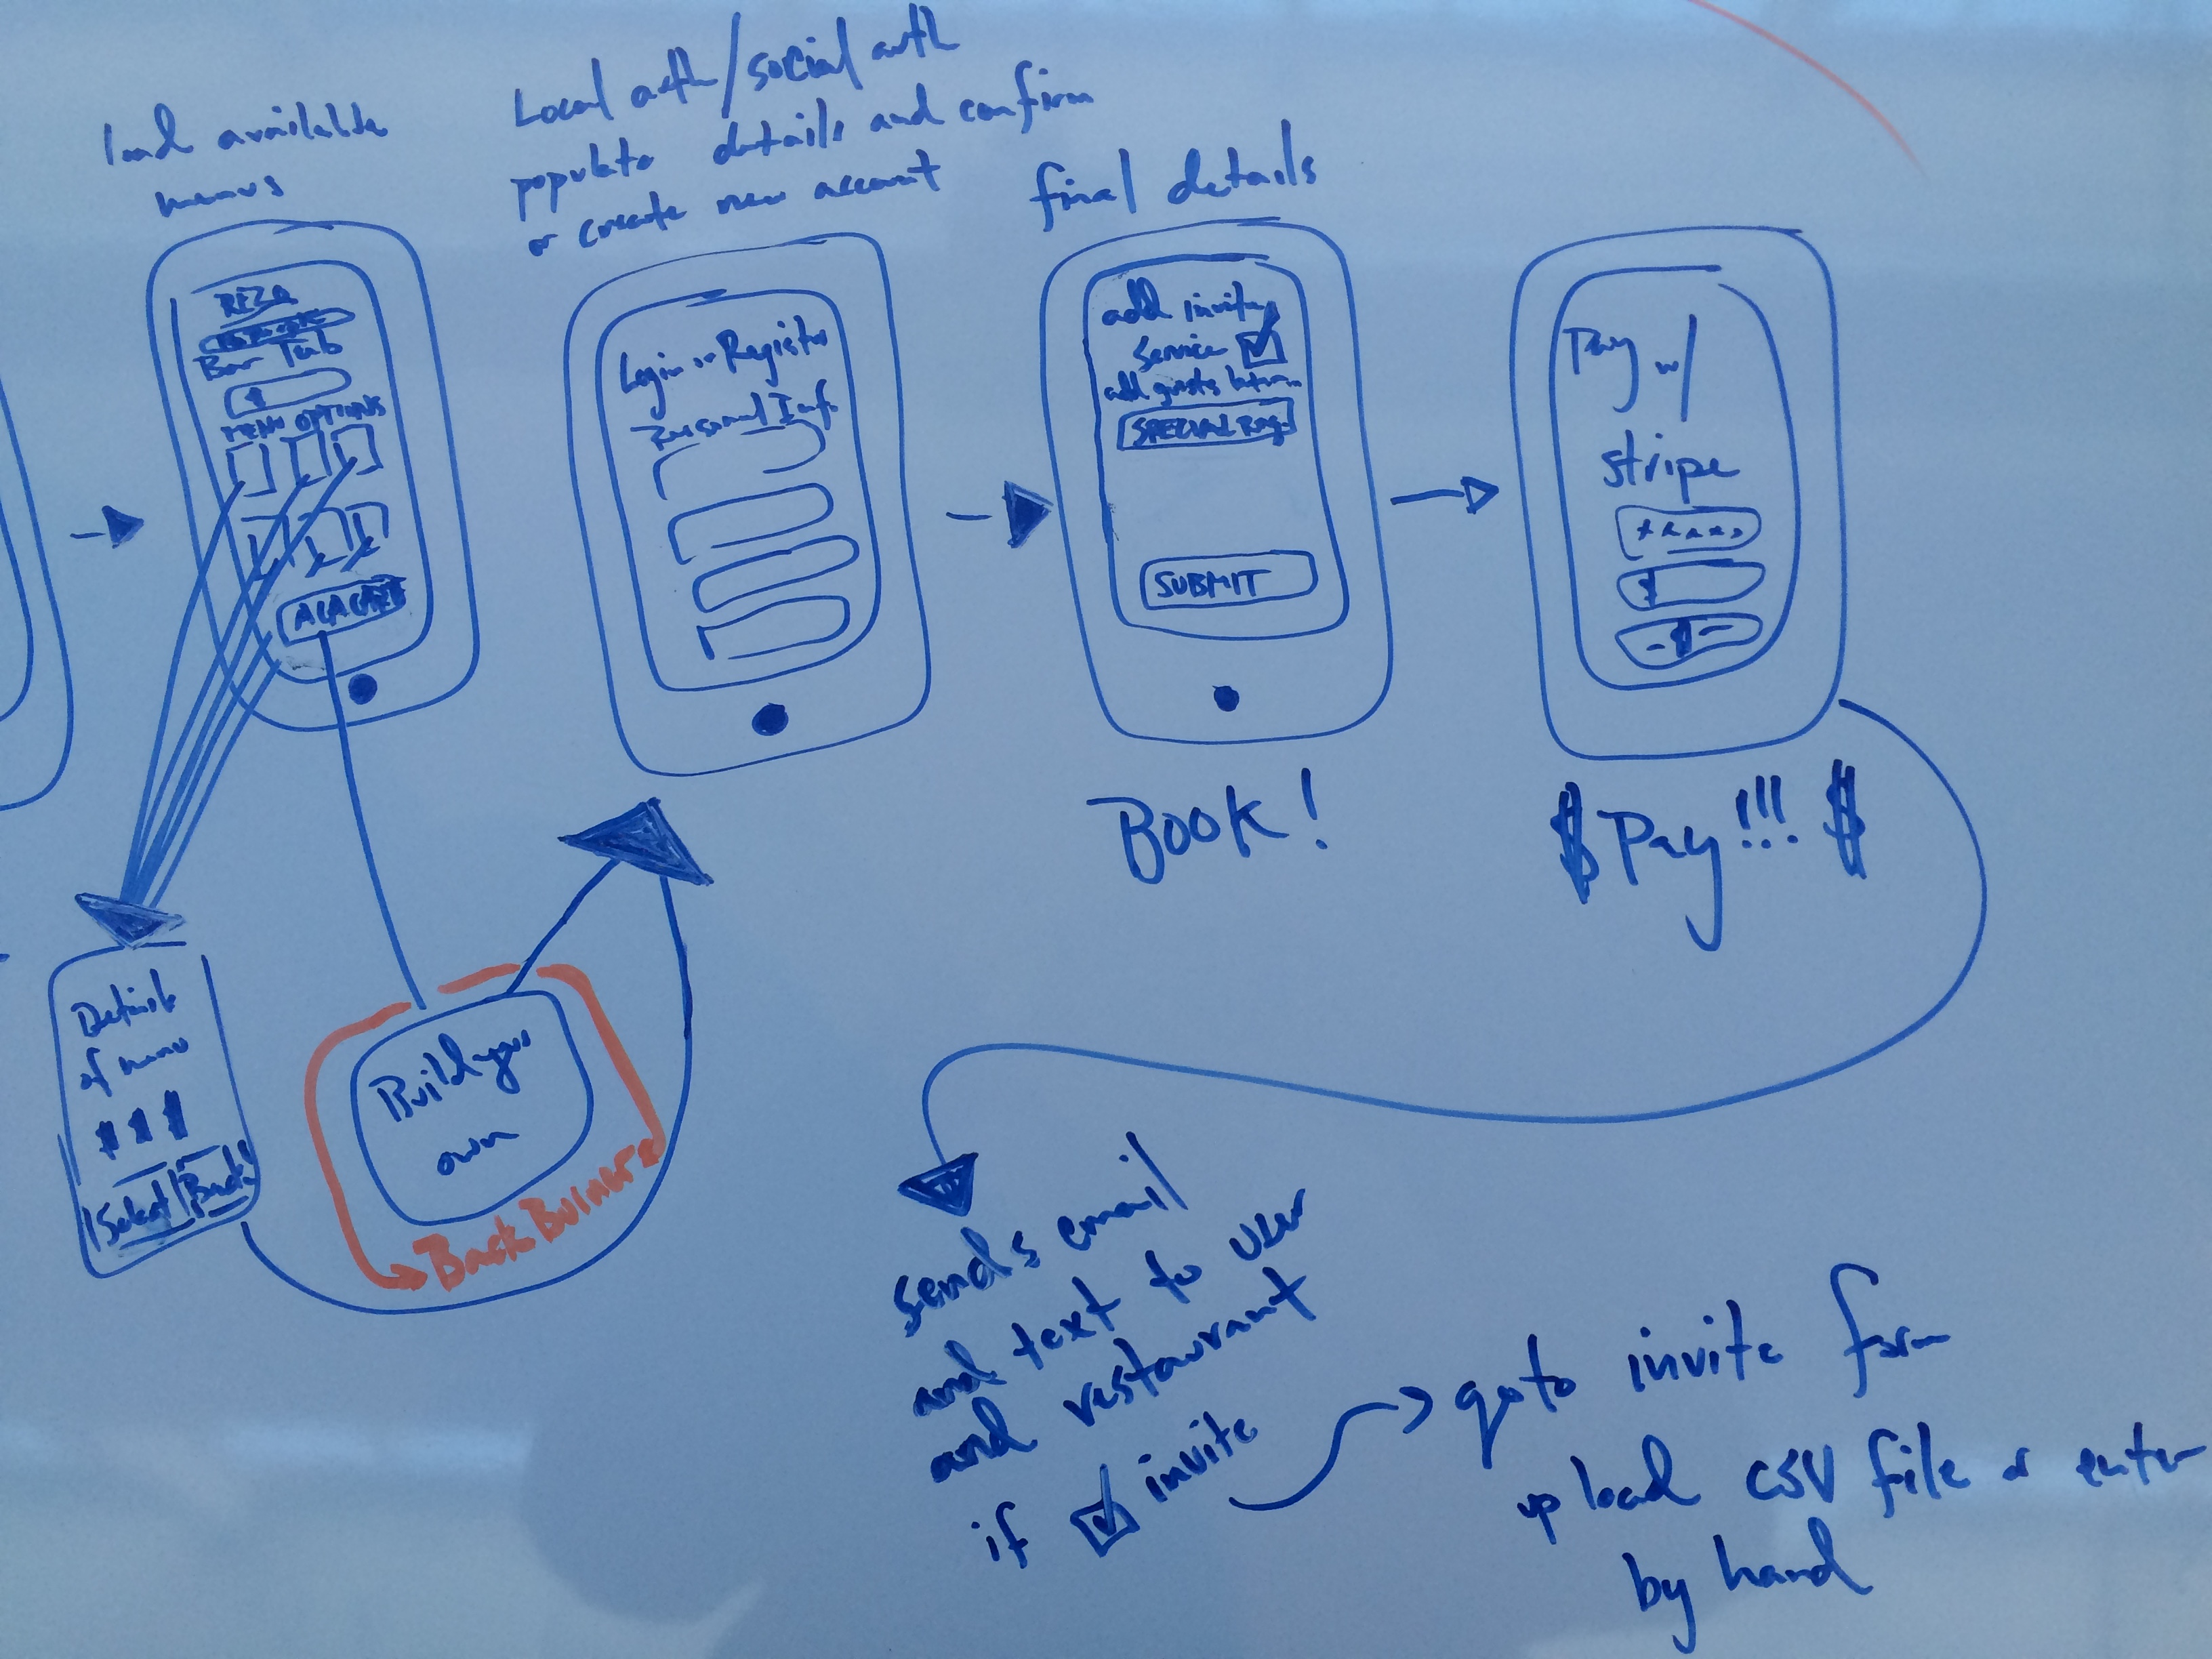 load available
menus
Bar Tab
$
MENU OPTIONS
ALA CARTE
Details
of menu
Select Back
Build your
own
Back Burner
Local auth/social auth
populate details and confirm
or create new account
Login or Register
Personal Inf
final details
add invite
Service
SUBMIT
Book!
Pay w/
Stripe
xxxx
$
$
$Pay!!! $
sends email
and text to user
and restaurant
if invite
goto invite form
upload CSV file or enter
by hand